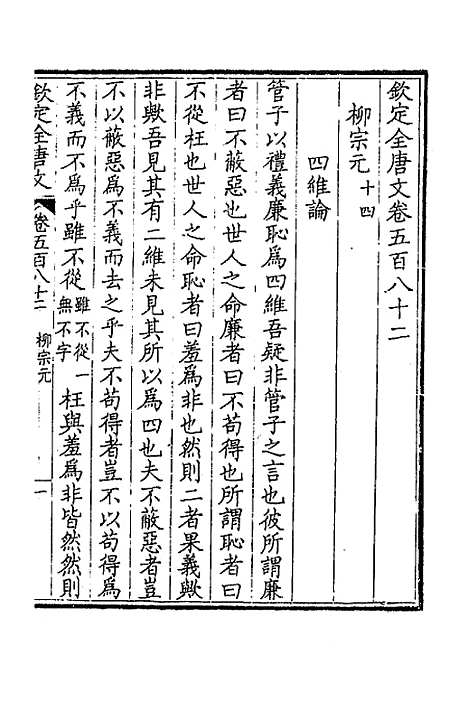 欽定全唐文卷五百八十二
柳宗元 十四
四維論
管子以禮義廉恥為四維吾疑非管子之言也彼所謂廉
者曰不蔽惡也世人之命廉者曰不苟得也所謂恥者曰
不從枉也世人之命恥者曰羞為非也然則二者果義歟
非歟吾見其有二維未見其所以為四也夫不蔽惡者豈
不以蔽惡為不義而去之乎夫不苟得者豈不以苟得為
不義而不為乎雖不從 雖不從一無不字 枉與羞為非皆然然則
欽定全唐文 卷五百八十二 柳宗元 一